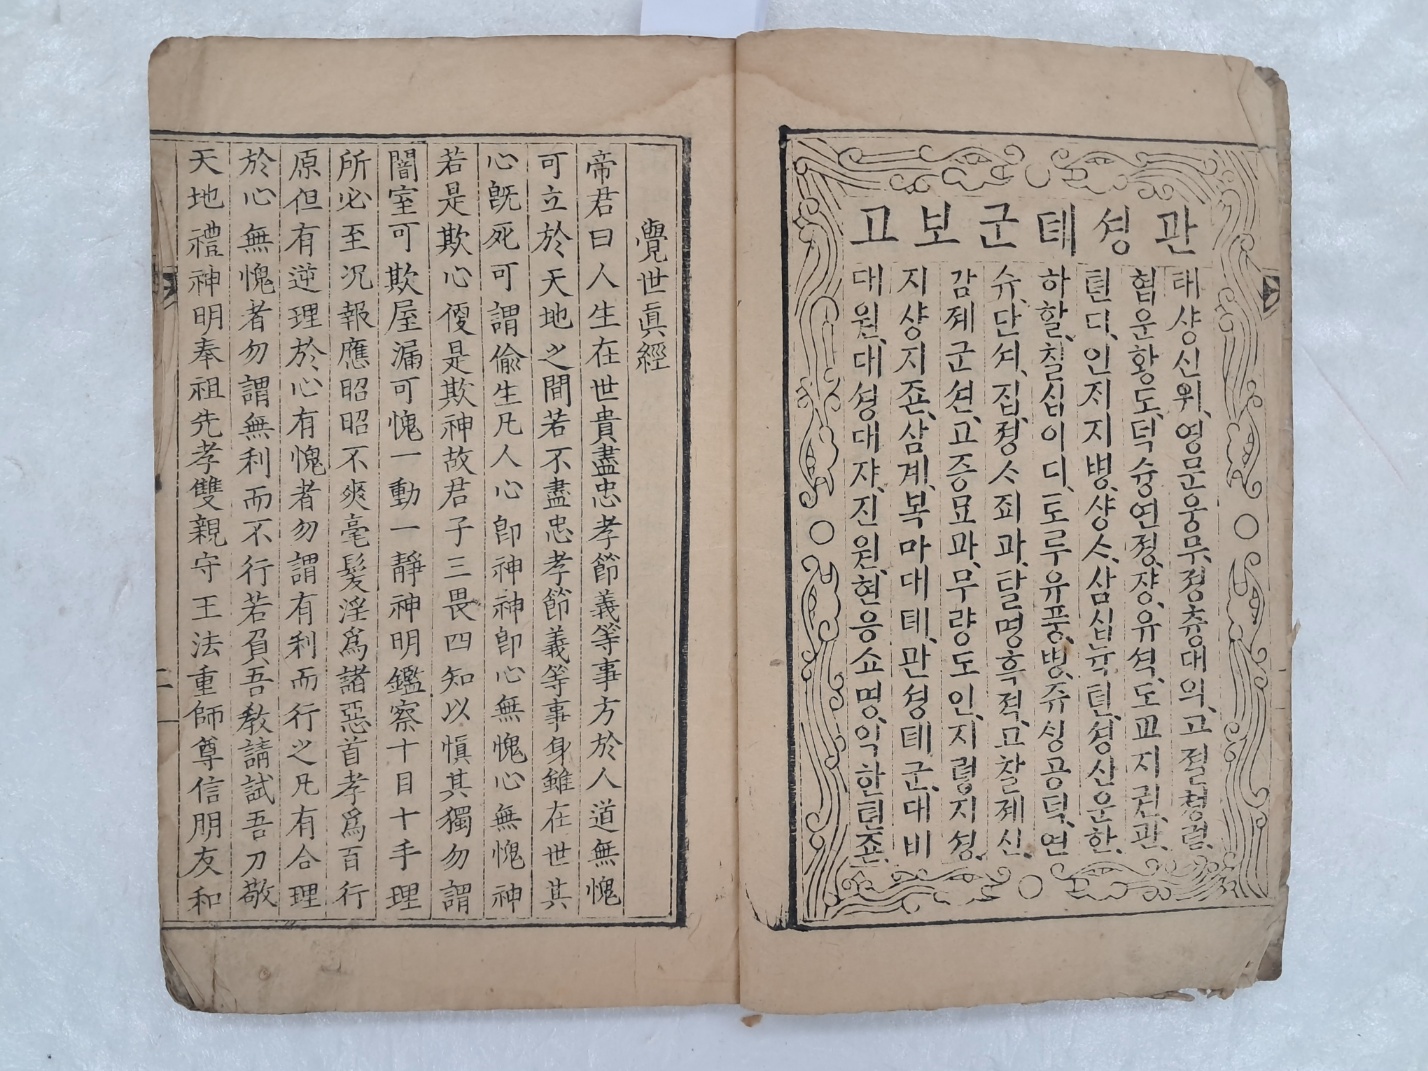 관셩뎨군보고
태샹신위、영문웅무、졍츙대의、고졀쳥렬、
협운황도、덕슝연졍、쟝유셕、도교지권、관
텬디、인지지병、샹ᄉ、삼십뉵텬、셩산운한、
하할、칠십이디、토루유풍、병、쥬싱공덕、연
슈、단셔、집、졍ᄉ죄과、달명흑젹、고찰졔신、
감졔군션、고증묘과、무량도인、지령지셩、
지샹지존、삼계、복마대뎨、관셩뎨군、대비
대원、대셩대쟈、진원、현응쇼명、익한텬존、
覺世眞經
帝君曰人生在世貴盡忠孝節義等事方於人道無愧
可立於天地之間若不盡忠孝節義等事身雖在世其
心旣死可謂偸生凡人心卽神神卽心無愧心無愧神
若是欺心便是欺神故君子三畏四知以愼其獨勿謂
闇室可欺屋漏可愧一動一靜神明鑑察十目十手理
所必至况報應昭昭不爽毫髮淫爲諸惡首孝爲百行
原但有逆理於心有愧者勿謂有利而行之凡有合理
於心無愧者勿謂無利而不行若負吾敎請試吾刀敬
天地禮神明奉祖先孝雙親守王法重師尊信朋友和